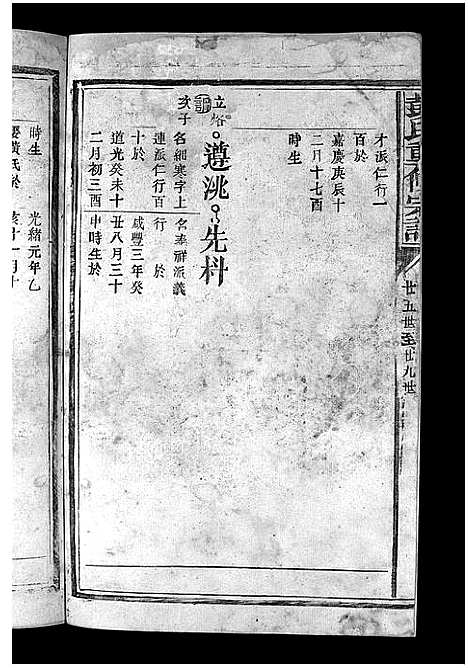 廿五世至廿九世
才派仁行一
百於
嘉慶庚辰十
二月十七酉
時生
立裕
亥子
遵洮
名細寒字上
連派仁行百
十於
道光癸未十
二月初三酉
先料
名奉祥派義
行 於
咸豐三年癸
丑八月三十
申時生於
時生 光緒元年乙
娶黃氏於 亥十一月十